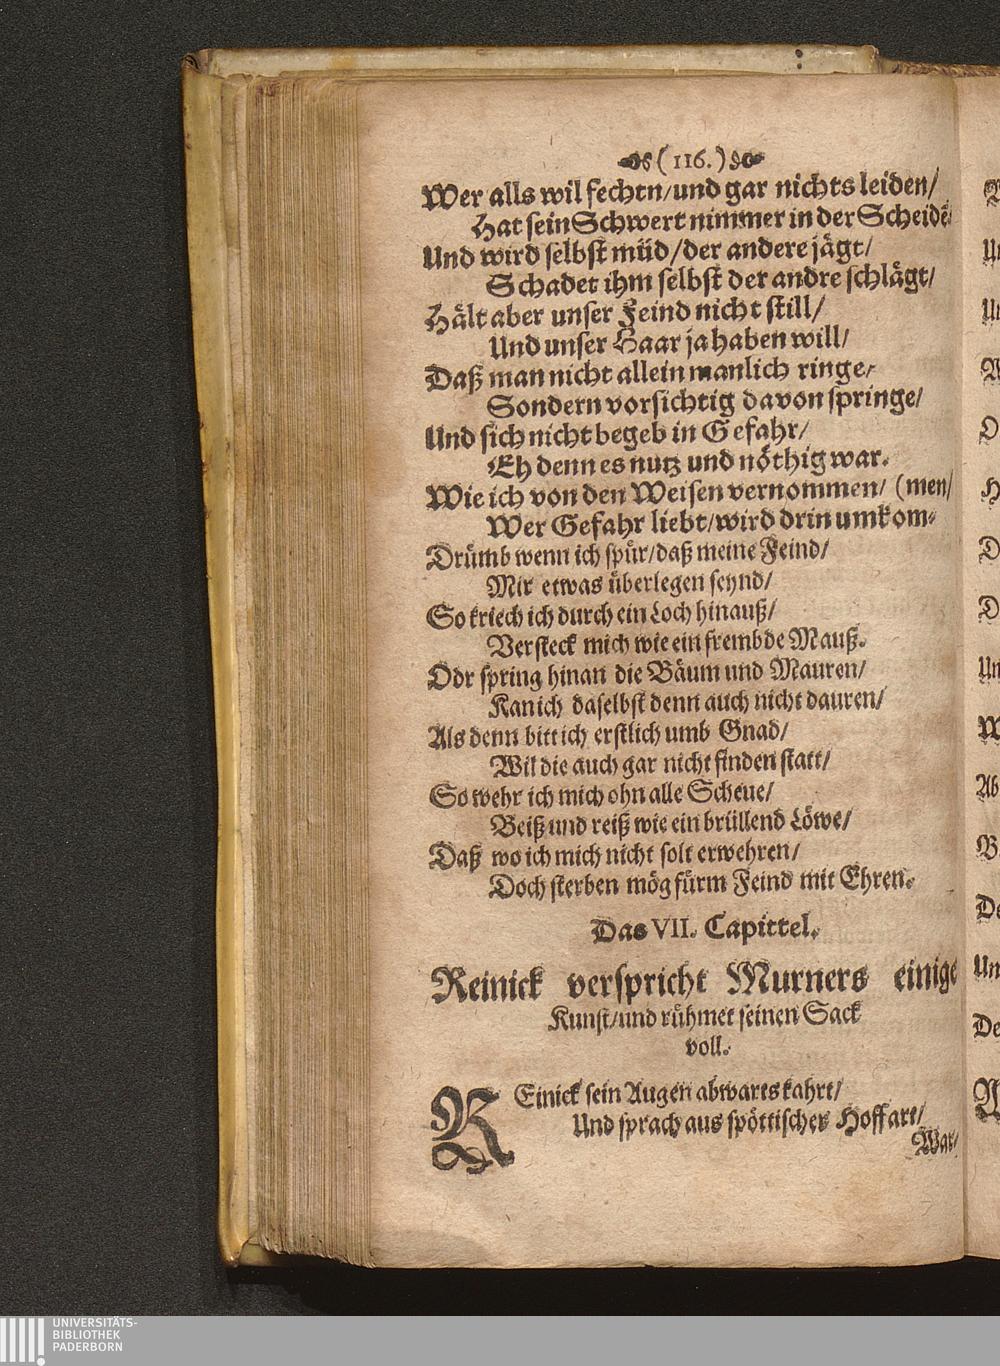 (116.)
Wer alls wil fechtn/und gar nichts leiden/
Hat sein Schwert nimmer in der Scheidē/
Und wird selbst müd/der andere jägt/
Schadet ihm selbst der andre schlägt/
Hält aber unser Feind nicht still/
Und unser Haar ja haben will/
Daß man nicht allein manlich ringe/
Sondern vorsichtig davon springe/
Und sich nicht begeb in Gefahr/
Eh denn es nutz und nöthig war.
Wie ich von den Weisen vernommen/ (men/
Wer Gefahr liebt/wird drin umkom-
Drümb wenn ich spür/daß meine Feind/
Mir etwas überlegen seynd/
So kriech ich durch ein Loch hinauß/
Versteck mich wie ein frembde Mauß.
Odr spring hinan die Bäum und Mauren/
Kan ich daselbst denn auch nicht dauren/
Als denn bitt ich erstlich umb Gnad/
Wil die auch gar nicht finden statt/
So wehr ich mich ohn alle Scheue/
Beiß und reiß wie ein brüllend Löwe/
Daß wo ich mich nicht solt erwehren/
Doch sterben mög fürm Feind mit Ehren.
Das VII. Capittel.
Reinick verspricht Murners einige
Kunst/und rühmet seinen Sack
voll.
REinick sein Augen abwarts kahrt/
Und sprach aus spöttischer Hoffart/
War/
UNIVERSITÄTS-
BIBLIOTHEK
PADERBORN